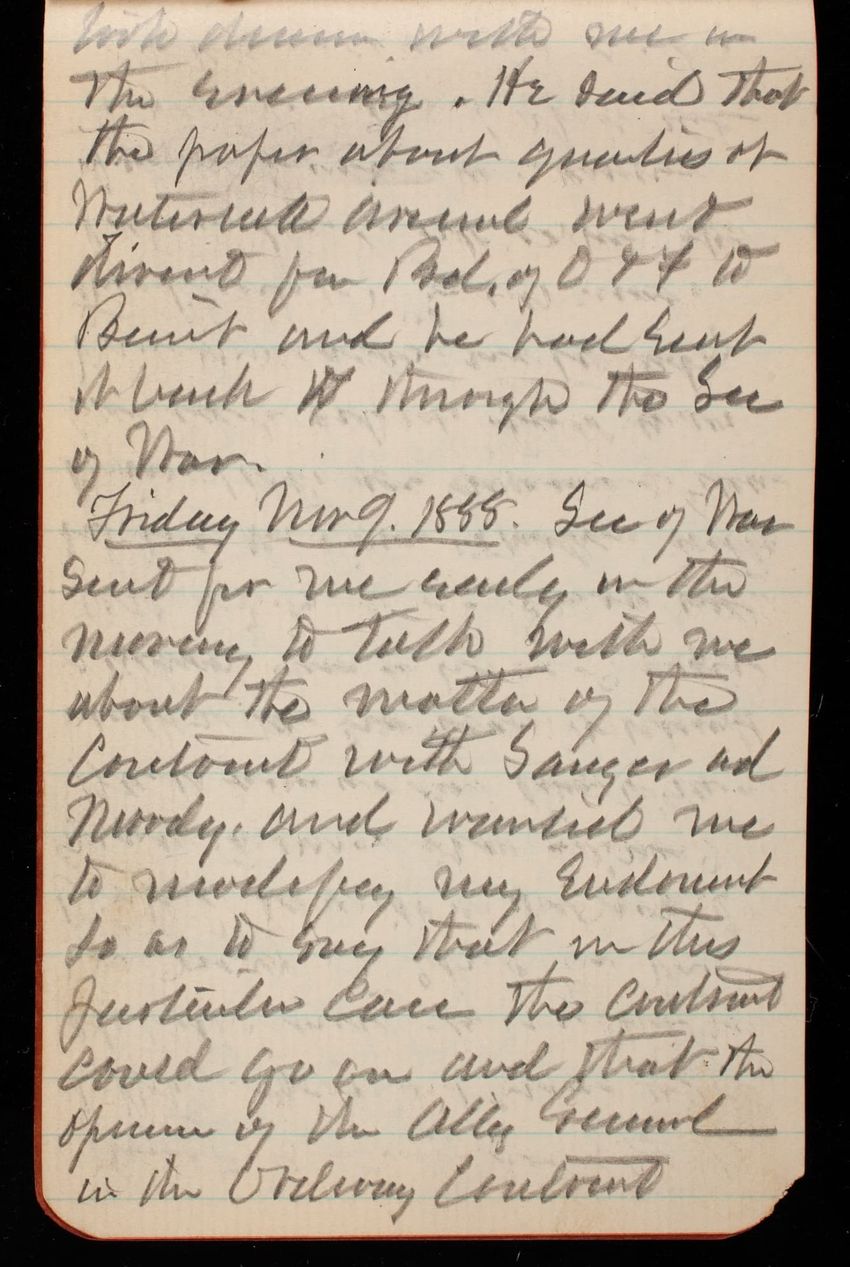 took dinner with me in
the evening. He said that
the paper about quarters at
Watervliet Arsenal went
direct from Bd. of O & F to
Benét and he had sent
it back through the Sec
of War.
Friday Nov 9. 1888. Sec of War
sent for me early in the
morning to talk with me
about the matter of the
Contract with Sanger and
Moody. and wanted me
to modify my Endorsement
so as to say that in this
particular case the contract
could go on and that the
opinion of the Atty General
in the Ordway Contract